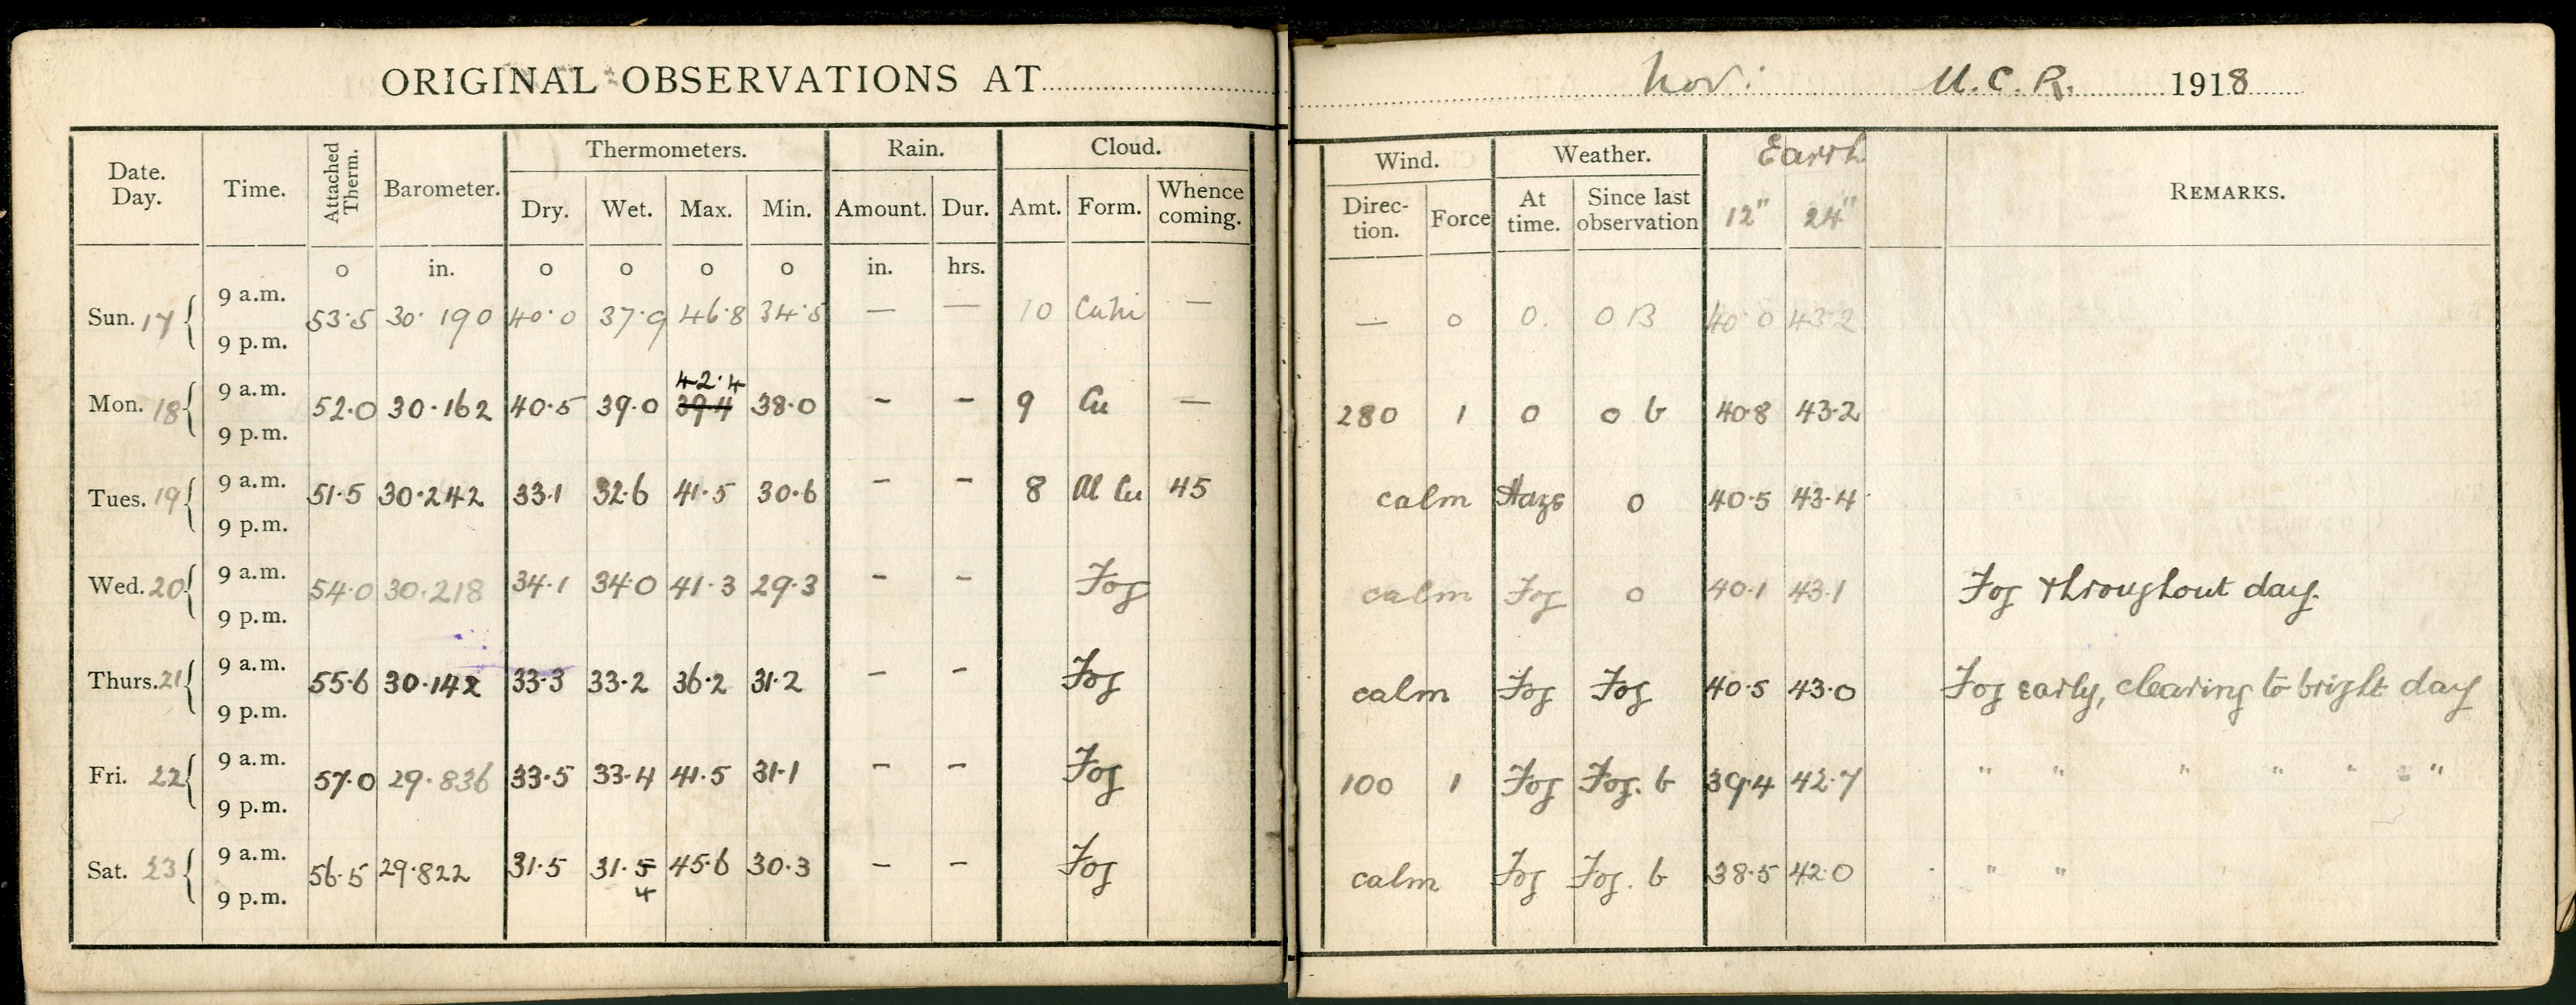 ORIGINAL OBSERVATIONS AT Nov: U.C.R. 1918
Date. Day. Time. Attached Therm. Barometer. Thermometers. Rain. Cloud. Wind. Weather. Earth REMARKS.
Dry. Wet. Max. Min. Amount. Dur. Amt. Form. Whence coming. Direc- tion. Force At time. Since last observation 12" 24"
o in. o o o o in. hrs.
9 a.m.
Sun. 17 53.5 30.190 40.0 37.9 46.8 34.5 — — 10 — — 0 0. 0 B 40.0 43.2
9 p.m.
9 a.m. 42.4
Mon. 18 52.0 30.162 40.5 39.0 39.4 38.0 - - 9 Cu — 280 1 0 0 b 40.8 43.2
9 p.m.
9 a.m.
Tues. 19 51.5 30.242 33.1 32.6 41.5 30.6 - - 8 Al Cu 45 calm Haze 0 40.5 43.4
9 p.m.
9 a.m.
Wed. 20 54.0 30.218 34.1 34.0 41.3 29.3 - - Fog calm Fog 0 40.1 43.1 Fog throughout day.
9 p.m.
9 a.m.
Thurs. 21 55.6 30.142 33.3 33.2 36.2 31.2 - - Fog calm Fog Fog 40.5 43.0 Fog early, clearing to bright day
9 p.m.
9 a.m.
Fri. 22 57.0 29.836 33.5 33.4 41.5 31.1 - - Fog 100 1 Fog Fog. b 39.4 42.7 " " " " " "
9 p.m.
9 a.m.
Sat. 23 56.5 29.822 31.5 31.5 45.6 30.3 - - Fog calm Fog Fog. b 38.5 42.0 " "
9 p.m. 4